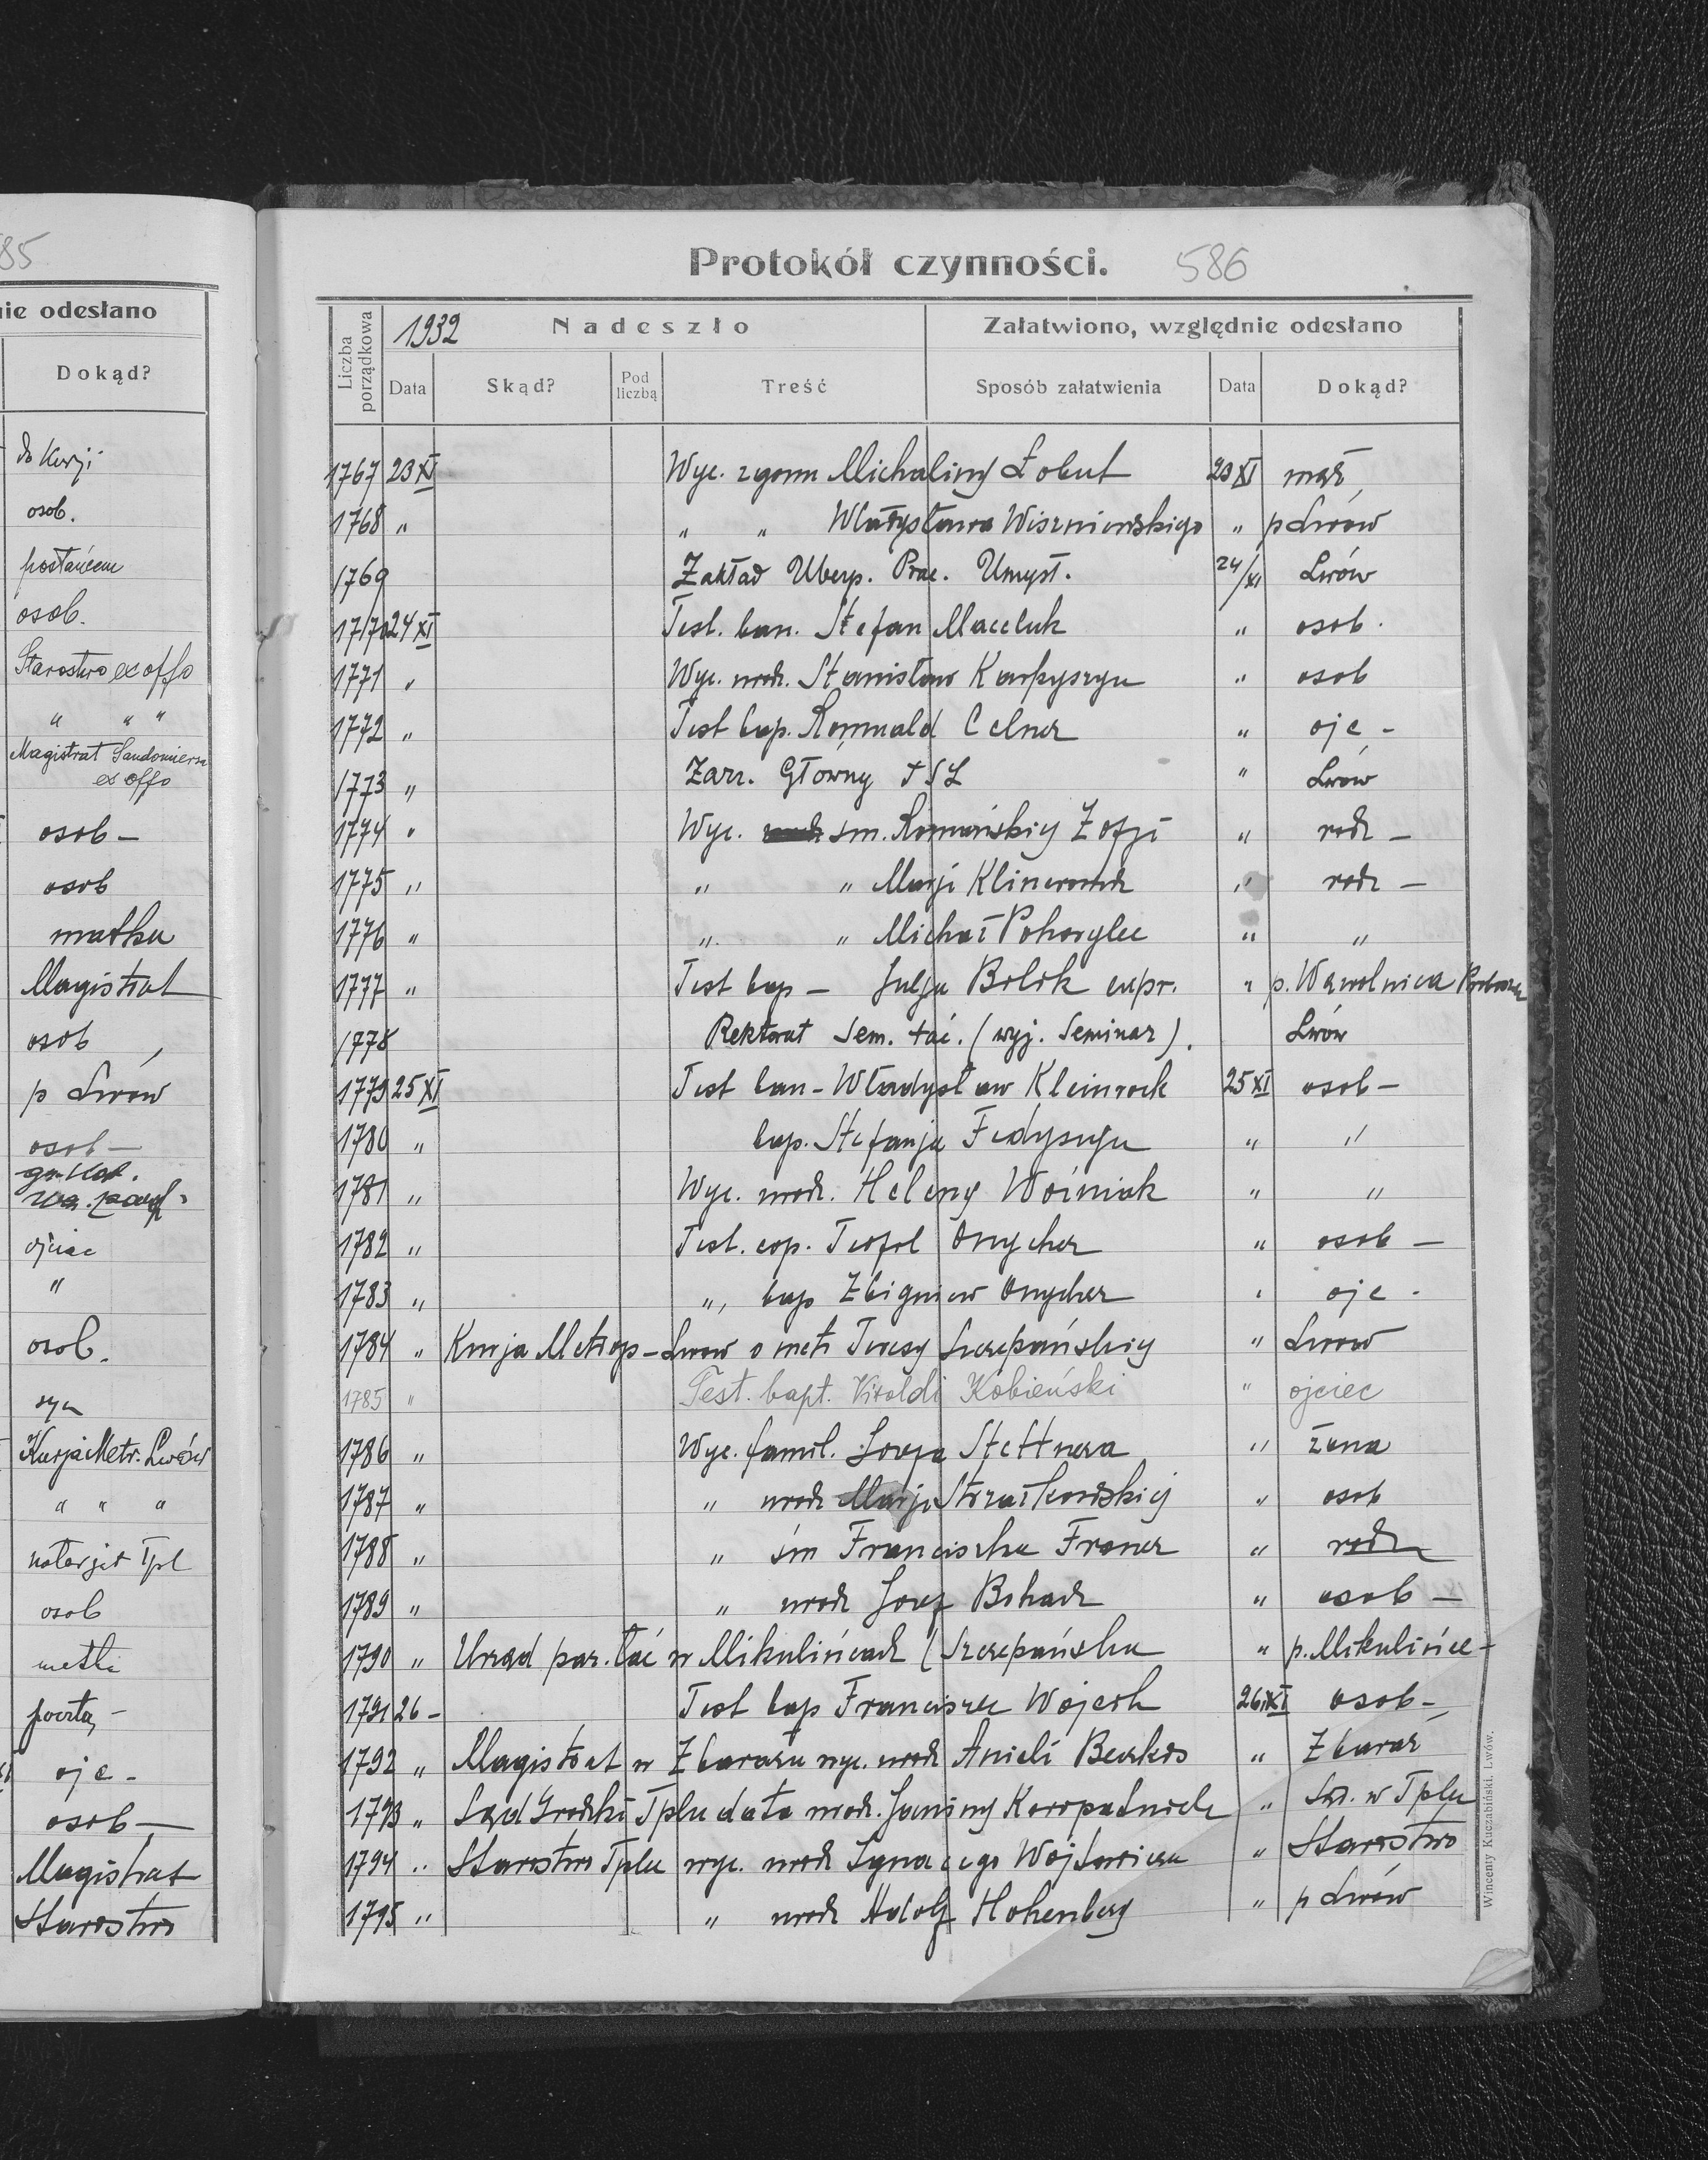 85
nie odesłano
Dokąd?
do Kurji
osob.
posłańcem
osob.
Starostwo ex offo
" " "
Magistrat Sandomierz
ex offo
osob -
osob
matka
Magistrat
osob
p Lwów
osob -
gr. kat.
ojciec
"
osob.
syn
Kurja Metr. Lwów
" " "
notarjat Tpl
osob
matki
poczta -
ojc -
osob -
Magistrat
Starostwo
Protokół czynności. 586
Liczba porządkowa
1932 Nadeszło
Załatwiono, względnie odesłano
Data Skąd? Pod liczbą Treść Sposób załatwienia Data Dokąd?
1767 23 XI Wyc. zgonu Michaliny Łobut 23 XI mąż
1768 " " " Władysława Wiszniewskiego " p Lwów
1769 Zakład Ubezp. Prac. Umysł. 24/XI Lwów
1770 24 XI Test. ban. Stefan Maceluk " osob.
1771 " Wyc. urodz. Stanisław Karpyszyn " osob
1772 " Test bap. Romuald Celner " ojc -
1773 " Zarz. Główny TSL " Lwów
1774 " Wyc. śm. Romańskiej Zofji " rodz -
1775 " " " Marji Klinewand " rodz -
1776 " " " Michał Pohorylec " "
1777 " Test bap - Julja Bolok " p. Wąwolnica
1778 Rektorat Sem. łać. (wyj. Seminar). Lwów
1779 25 XI Test ban - Władysław Kleinrock 25 XI osob -
1780 " bap. Stefanja Fedyszyn " "
1781 " Wyc. urodz. Heleny Woźniak " "
1782 " Test. cop. Teofil Onycher " osob -
1783 " " bap Zbigniew Onycher " ojc -
1784 " Kurja Metrop - Lwow o metr Teresy Szczepańskiej " Lwow
1785 " Test. bapt. Vitoldi Kobieński " ojciec
1786 " Wyc. famil. Józefa Stettnera " żona
1787 " " urodz Marji Strzałkowskiej " osob
1788 " " śm Franciszka Froncz " rodz
1789 " " urodz Józef Bohacz " osob -
1790 " Urząd par. łać w Mikulińcach (Szczepańska " p. Mikulińce -
1791 26 - Test bap Franciszek Wojcik 26 XI osob -
1792 " Magistrat w Zbarażu wyc. urodz Anieli Beczkos " Zbaraż
1793 " Sąd Grodzki Tplu data urodz. Janiny Koropatnick " Sąd. w Tplu
1794 " Starostwo Tplu wyc. urodz Ignacego Wójtowicza " Starostwo
1795 " " urodz Adolf Hohenberg " p Lwów
Wincenty Kuczabiński. Lwów.